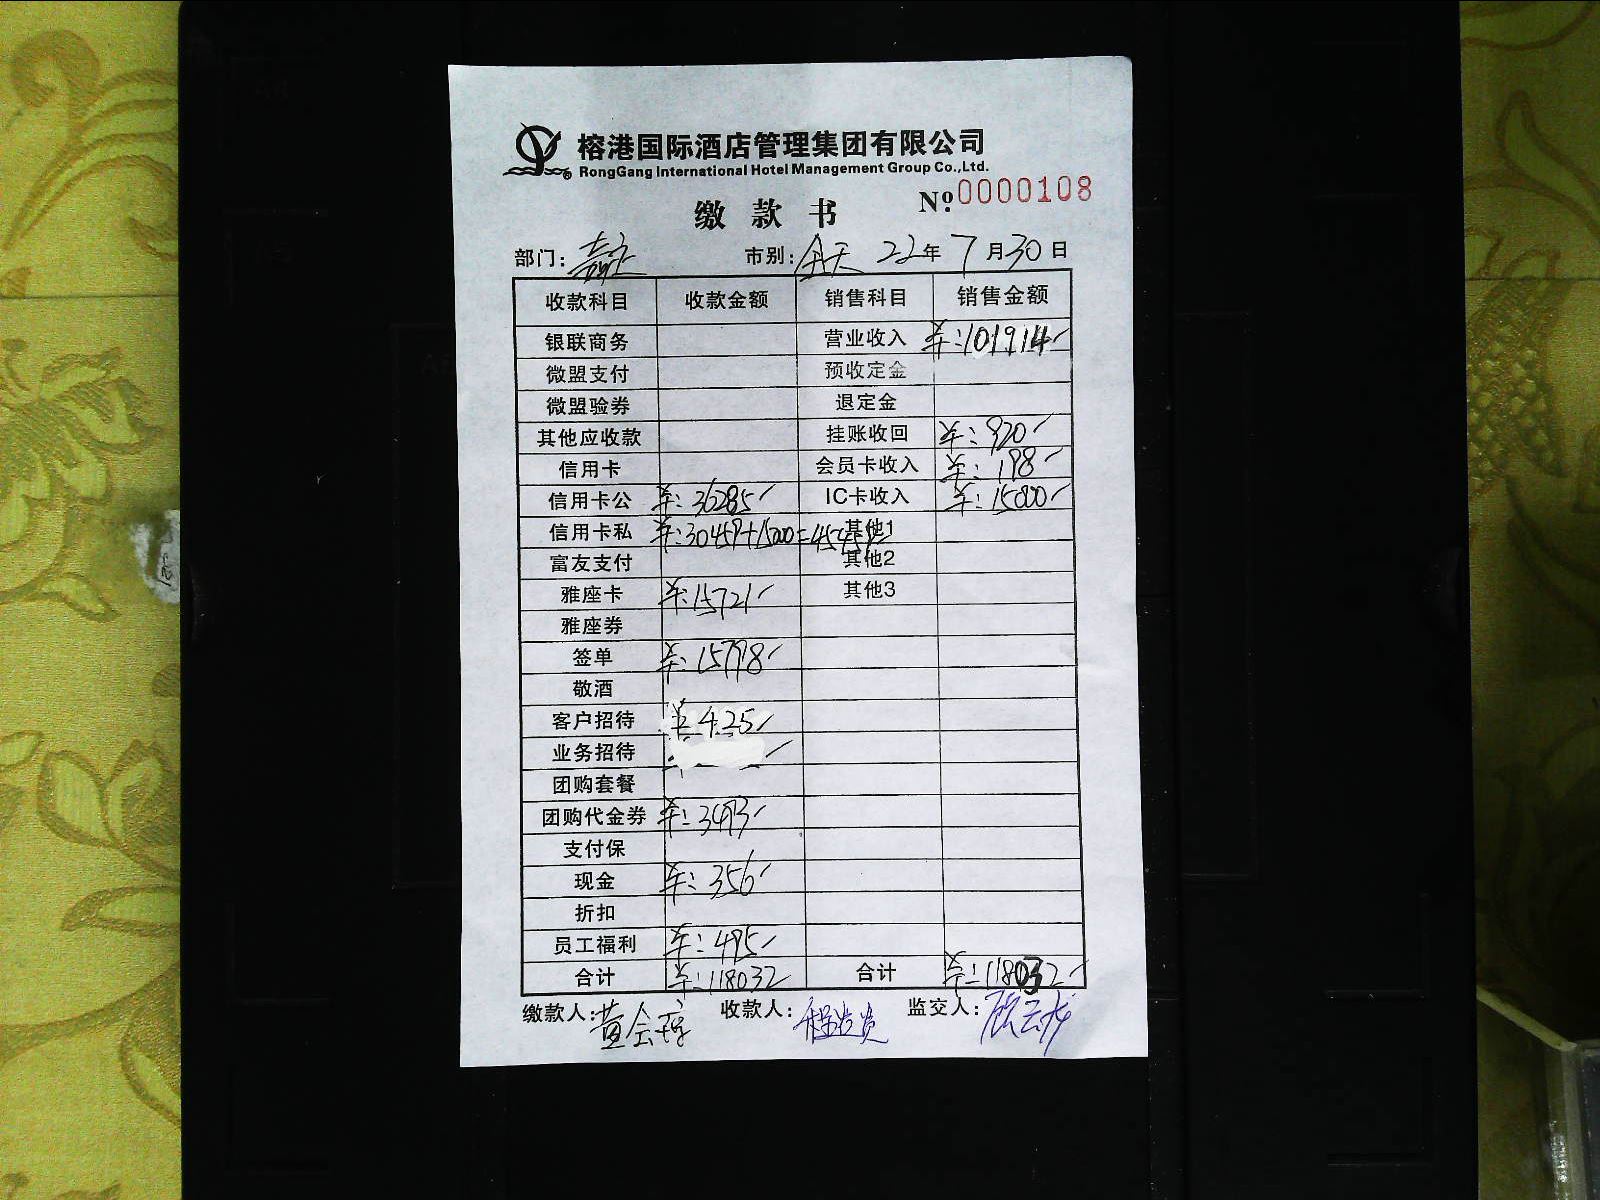 榕港国际酒店管理集团有限公司
RongGang International Hotel Management Group Co.,Ltd.
缴款书 Nº:0000108
部门:嘉定 市别:全天 22年7月30日
收款科目 收款金额 销售科目 销售金额
银联商务 营业收入 ¥:101914
微盟支付 预收定金
微盟验券 退定金
其他应收款 挂账收回 ¥:920
信用卡 会员卡收入 ¥:198
信用卡公 ¥:36285 IC卡收入 ¥:15000
信用卡私 ¥:30459+15000=45459 其他1
富友支付 其他2
雅座卡 ¥:15721 其他3
雅座券
签单 ¥:15798
敬酒
客户招待 ¥425
业务招待
团购套餐
团购代金券 ¥:3493
支付保
现金 ¥:356
折扣
员工福利 ¥:495
合计 ¥:118032 合计 ¥:118032
缴款人:黄会 收款人: 监交人:顾云龙